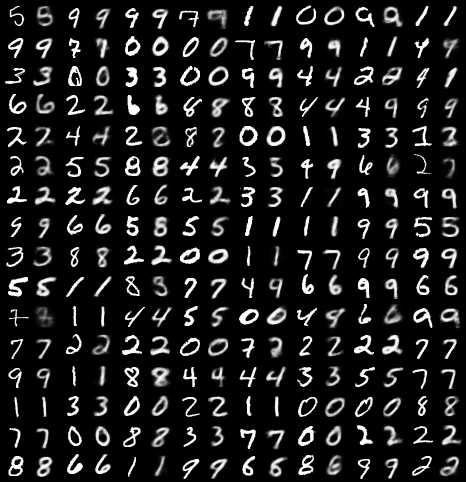 5 8 9 9 9 9 7 9 1 1 0 0 9 9 1 1
9 9 7 7 0 0 0 0 7 7 9 9 1 1 4 9
3 3 0 0 3 3 0 0 9 9 4 4 2 2 4 1
6 6 2 2 6 6 8 8 8 8 4 4 4 9 9 9
2 2 4 4 2 8 8 2 0 0 1 1 3 3 1 3
2 2 5 5 8 8 4 4 3 5 9 9 6 6 2 7
2 2 2 2 6 6 2 2 3 3 1 1 9 9 9 9
9 9 6 6 5 8 5 5 1 1 1 1 9 9 5 5
3 3 8 8 2 2 0 0 1 1 7 7 9 9 9 9
5 5 1 1 8 3 7 7 4 9 6 6 9 9 6 6
7 1 1 4 4 5 5 0 0 4 9 6 6 9 9
7 7 2 2 2 2 0 0 7 2 2 2 2 2 7 7
9 9 1 1 8 8 4 4 4 4 3 3 5 5 7 7
1 1 3 3 0 0 2 2 1 1 0 0 0 0 8 8
7 7 0 0 8 8 3 3 7 7 0 0 2 2 2 2
8 8 6 6 1 1 9 9 6 6 8 6 9 9 2 2